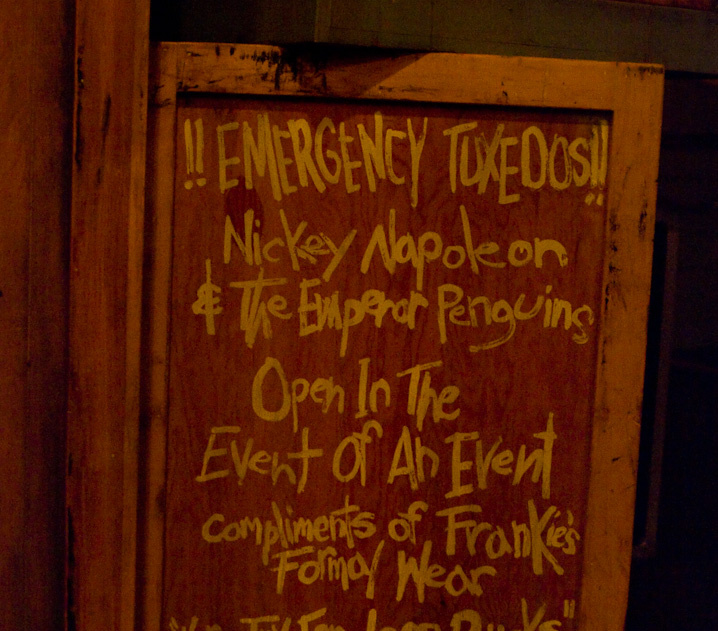 !! EMERGENCY TUXEDOS!!
Nickey Napoleon
& The Emperor Penguins
Open In The
Event Of An Event
compliments of Frankie's
Formal Wear